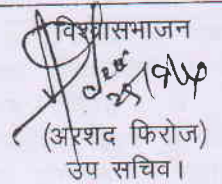 विश्वासभाजन
(अरशद फिरोज)
उप सचिव।